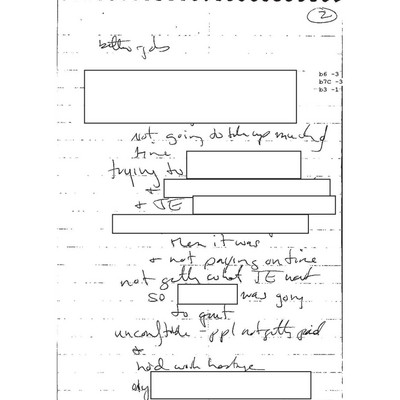 2
b6 -3
b7C -3
b3 -1
not going to take up much of
time
trying to
+
+ JE
then it was
+ not paying on time
not gettg what JE want
so was going
to quit
- ppl not gettg paid
+
held work hostage